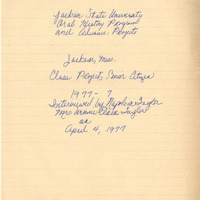 Jackson State University
Oral History Program
and Advance Project
Jackson, Miss.
Class Project, Senior Citizen
1977- 7
Interviewed by Taylor
Mrs Clara Taylor
on
April 4, 1977